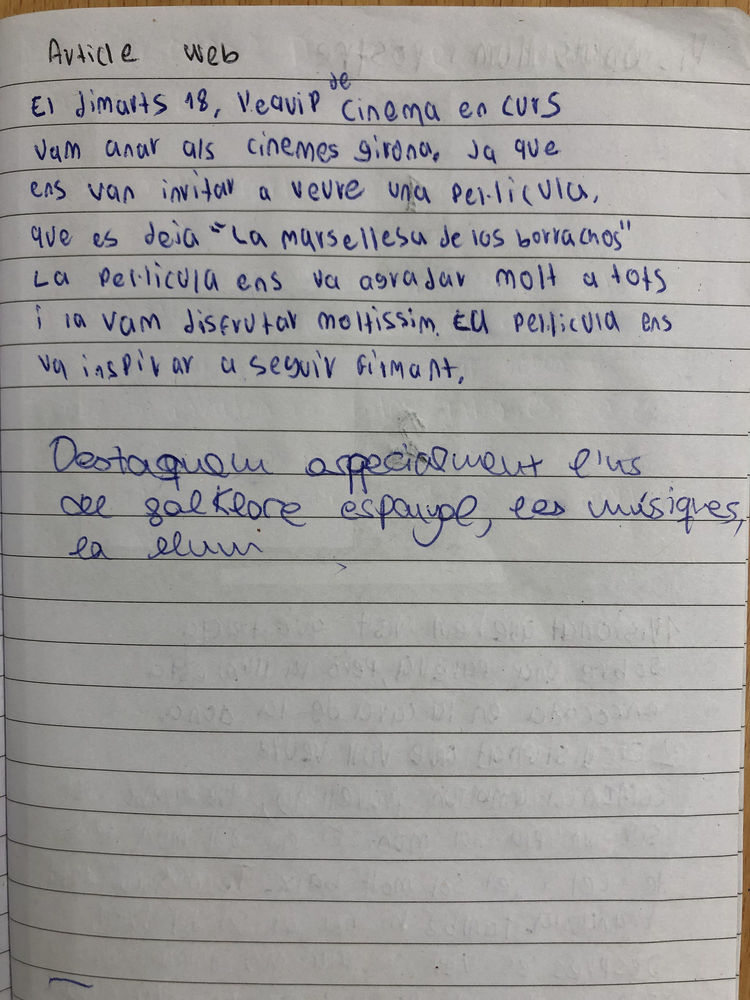 Article web
El dimarts 18, l'equip de Cinema en curs
vam anar als cinemes girona, Ja que
ens van invitar a veure una pel·licula,
que es deia "La marsellesa de los borrachos"
La pel·licula ens va agradar molt a tots
i la vam disfrutar moltissim. La pel·licula ens
va inspirar a seguir filmant.
Destaquem especialment l'us
del folklore espanyol, les músiques,
la llum